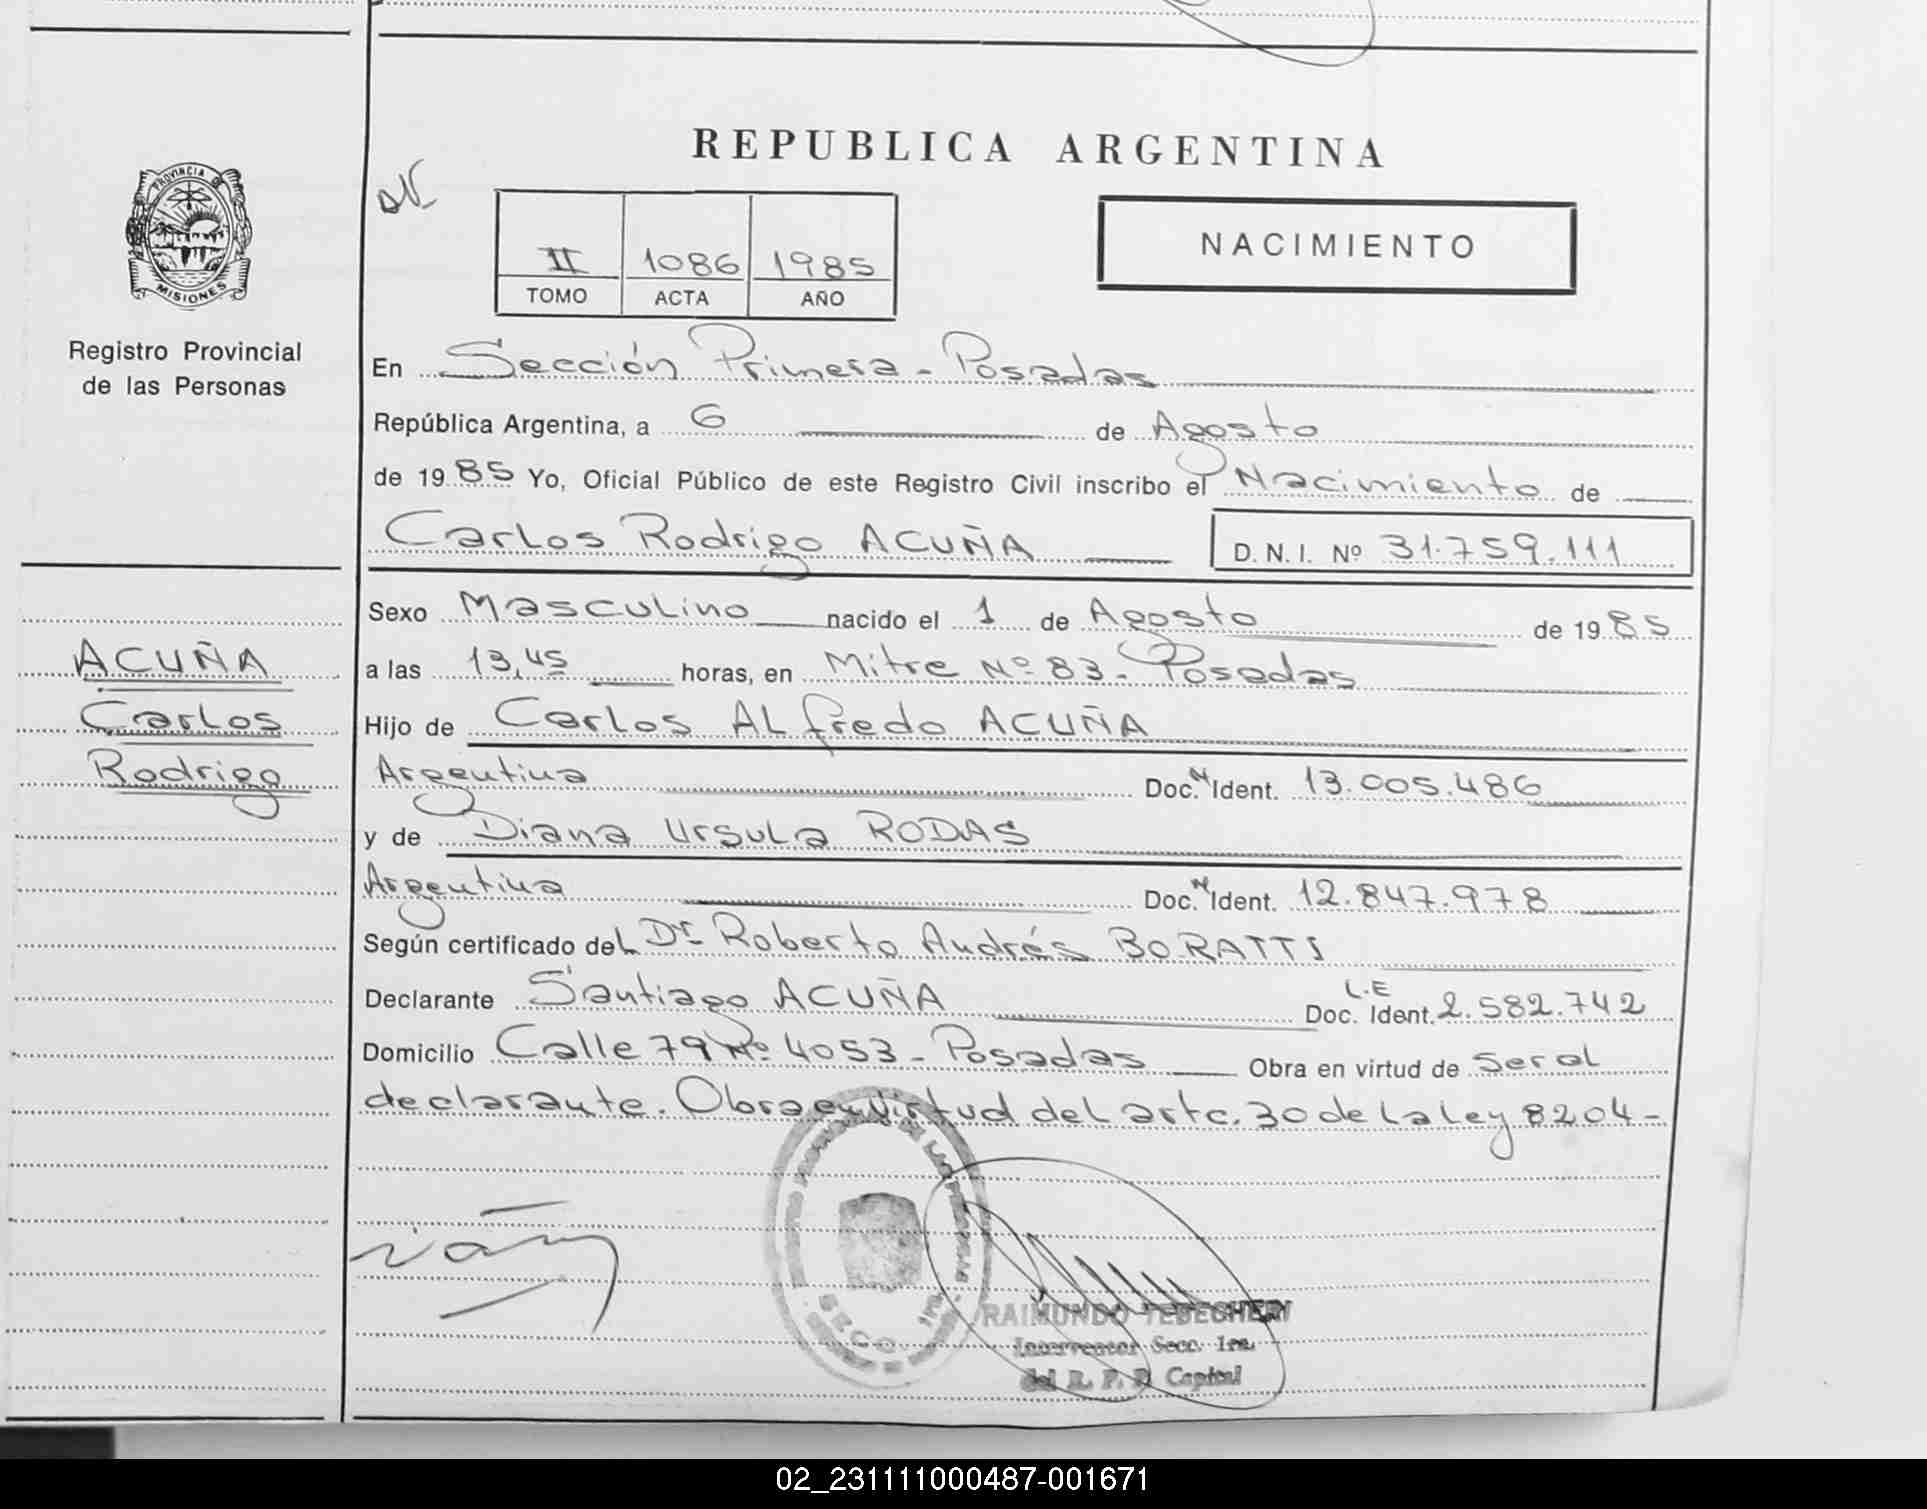 PROVINCIA DE
MISIONES
Registro Provincial
de las Personas
ACUÑA
Carlos
Rodrigo
REPUBLICA ARGENTINA
II 1086 1985
TOMO ACTA AÑO
NACIMIENTO
En Sección Primera - Posadas
República Argentina, a 6 de Agosto
de 1985 Yo, Oficial Público de este Registro Civil inscribo el Nacimiento de
Carlos Rodrigo ACUÑA D.N.I. Nº 31.759.111
Sexo Masculino nacido el 1 de Agosto de 1985
a las 13,45 horas, en Mitre Nº 83 - Posadas
Hijo de Carlos ALfredo ACUÑA
Argentina Doc. N Ident. 13.005.486
y de Diana Ursula RODAS
Argentina Doc. N Ident. 12.847.978
Según certificado del Dr Roberto Andrés BORATTI
Declarante Santiago ACUÑA L.E Doc. Ident. 2.582.742
Domicilio Calle 79 Nº 4053 - Posadas Obra en virtud de Ser el
declarante. Obra en virtud del artc. 30 de la Ley 8204-
RAIMUNDO
Interventor Secc. 1ra.
del R. P. P. Capital
02_231111000487-001671